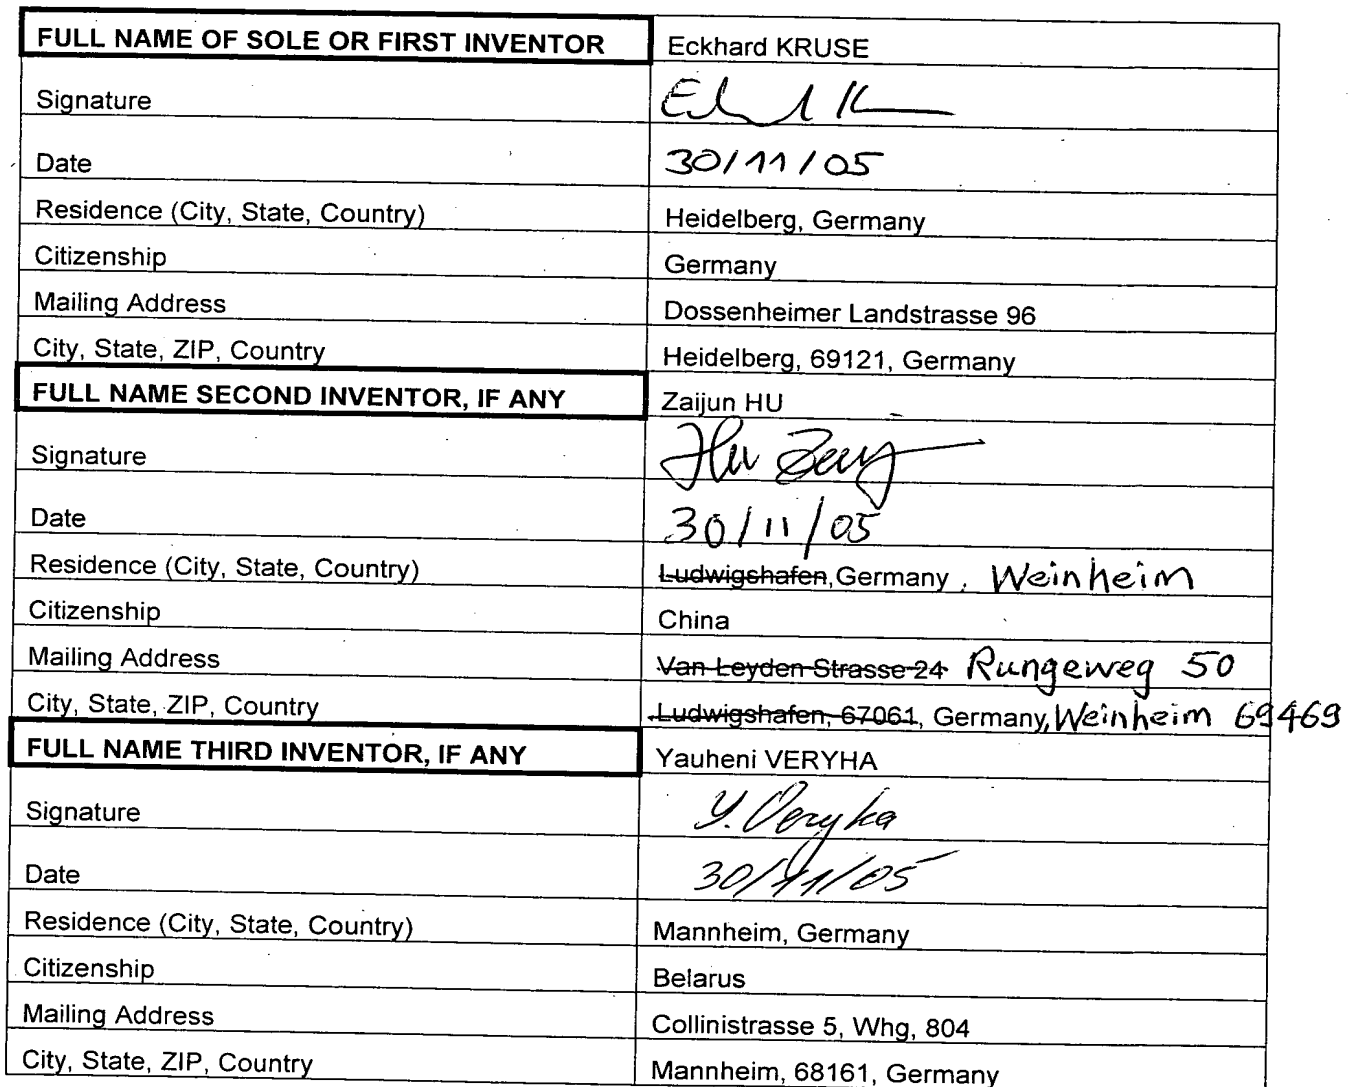 FULL NAME OF SOLE OR FIRST INVENTOR Eckhard KRUSE
Signature
Date 30/11/05
Residence (City, State, Country) Heidelberg, Germany
Citizenship Germany
Mailing Address Dossenheimer Landstrasse 96
City, State, ZIP, Country Heidelberg, 69121, Germany
FULL NAME SECOND INVENTOR, IF ANY Zaijun HU
Signature Hu
Date 30/11/05
Residence (City, State, Country) Ludwigshafen, Germany, Weinheim
Citizenship China
Mailing Address Van Leyden Strasse 24 Rungeweg 50
City, State, ZIP, Country Ludwigshafen, 67061, Germany, Weinheim 69469
FULL NAME THIRD INVENTOR, IF ANY Yauheni VERYHA
Signature Y. Veryha
Date 30/11/05
Residence (City, State, Country) Mannheim, Germany
Citizenship Belarus
Mailing Address Collinistrasse 5, Whg, 804
City, State, ZIP, Country Mannheim, 68161, Germany